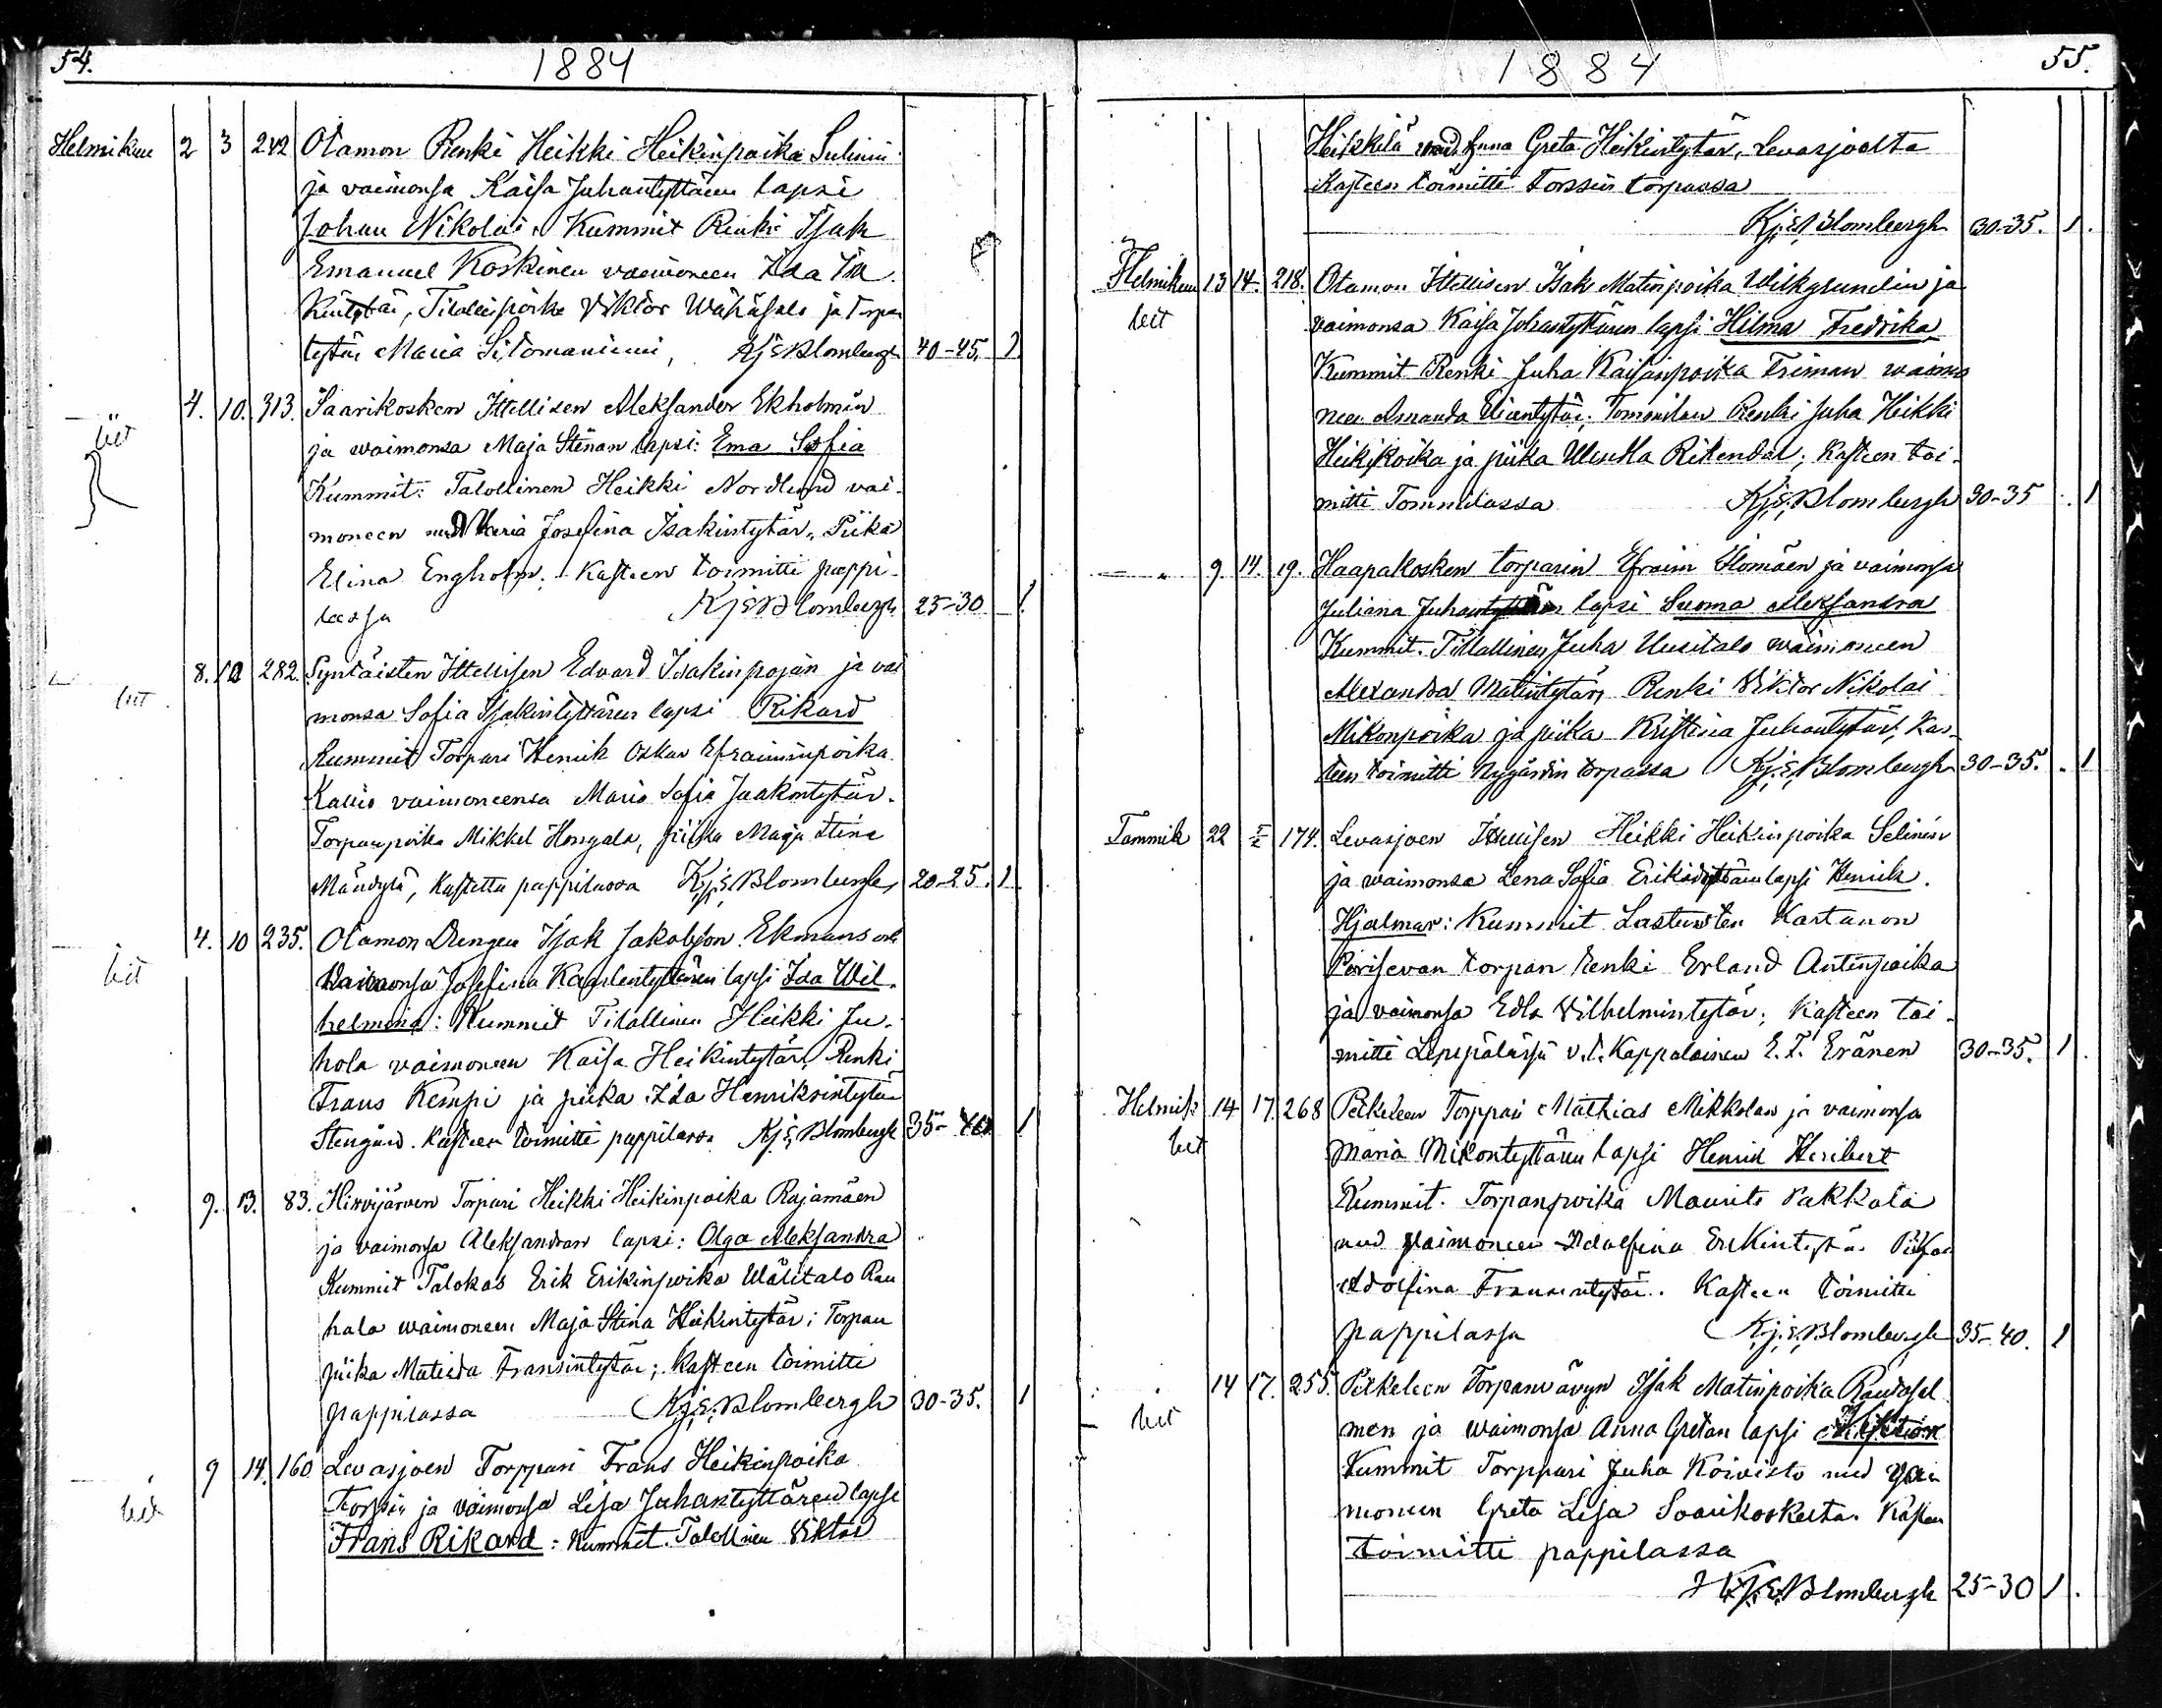 54.
1884
Helmikuu 2 3 242 Otamon Renki Heikki Heikinpoika Selinin
ja vaimonsa Kaisa Juhantyttären lapsi
Johan Nikolai. Kummit Renki Isak
Emanuel Koskinen vaimoneen Ida
Viktor Wähäsalo ja Torpan
tytär Maria KjEBlombergh 40-45. 1
4. 10. 313. Saarikosken Ittellisen Aleksander Ekholmin
ja waimonsa Maja Stinan lapsi: Ema Sofia
Kummit: Talollinen Heikki Nordlund vai-
moneen Maria Josefina Isakintytär, Piika
Elina Engholm. Kasteen toimitti pappi-
lassa KjEBlombergh 25-30 1
8. 10 282. Syntäisten Ittellisen Edvard Isakinpojan ja vai
monsa Sofia Isakintyttären lapsi Rikard
Kummit Torpari Henrik Oskar Efraiminpoika
Kallio vaimoneensa Maria Sofia Jaakontytär.
Torpanpoika Mikkel Hongala, piika Maija Stina
Mäntylä, Kastettu pappilassa KjEBlombergh 20-25. 1
4. 10 235. Otamon Drengen Isak Jakobsson Ekmans och
Waimonsa Josefina Kaarlentyttären lapsi Ida Wil-
helmina: Kummit Tilallinen Heikki Ju-
hola vaimoneen Kaisa Heikintytär, Renki
Frans Kempi ja piika Ida Henriksintytär
Stengård. Kasteen toimitti pappilassa KjEBlombergh 35-40 1
9. 13. 83. Hirvijärven Torpari Heikki Heikinpoika Rajamäen
ja vaimonsa Aleksandran lapsi: Olga Aleksandra
Kummit Talokas Erik Erikinpoika Wälitalo Rau
hala waimoneen Maja Stina Heikintytär; Torpan
piika Matilda Fransintytär; Kasteen toimitti
pappilassa KjEBlombergh 30-35. 1
9 14. 160 Levasjoen Torppari Frans Heikinpoika
Torssin ja vaimonsa Lisa Juhantyttären lapsi
Frans Rikard: Kummit. Talollinen Viktor
1884
55.
Heikkilä Anna Greta Heikintytär, Levasjoelta
Kasteen toimitti Torssin torpassa
KjEBlombergh 30-35. 1.
Helmikuu 13 14. 218. Otamon Ittellisen Isak Matinpoika Wilkgrundin ja
vaimonsa Kaisa Juhantyttären lapsi Hilma Fredrika
Kummit Renki Juha Kaisanpoika Friman waimo
neen Amanda Tommilan Renki Juha Heikki
Heikinpoika ja piika Kasteen toi-
mitti Tommilassa KjEBlombergh 30-35 1
9. 14. 19. Haapakosken torparin Efraim Elomäen ja vaimonsa
Juliana Juhantyttären lapsi Suoma Aleksandra
Kummit. Tilallinen Juha Uusitalo waimoneen
Alexandra Matintytär, Renki Viktor Nikolai
Mikonpoika ja piika Kristiina Juhantytär; Kas-
teen toimitti Nygårdin torpassa KjEBlombergh 30-35. 1
Tammik 22 174. Levasjoen Ittellisen Heikki Heikinpoika Selinin
ja waimonsa Lena Sofia lapsi Henrik
Hjalmar: Kummit Lasteurten Kartanon
torpan Renki Erland Antinpoika
ja vaimonsa Edla Vilhelmintytär; Kasteen toi-
mitti v.t. Kappalainen E. F. Eränen 30-35. 1
Helmik 14 17. 268 Torppari Mathias Mikkolan ja vaimonsa
Maria Mikontyttären lapsi Henrik Heribert
Kummit. Torpanpoika Maurits Pakkala
vaimoneen Adolfina Erkintytär Piika
Adolfina Fransintytär. Kasteen toimitti
pappilassa KjEBlombergh 35-40. 1
14 17. 255. Torpanvävyn Isak Matinpoika
men ja waimonsa Anna Gretan lapsi
Kummit Torppari Juha Koivisto vai
moneen Greta Lisa Saarikoskelta. Kasteen
toimitti pappilassa
KjEBlombergh 25-30 1.